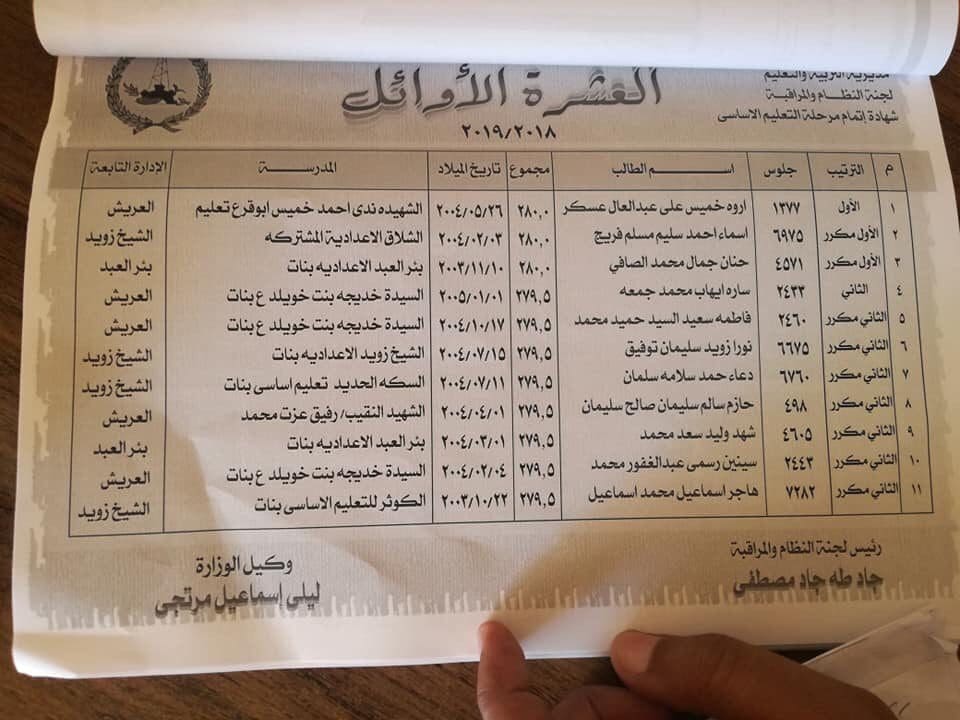 مديرية التربية والتعليم
لجنة النظام والمراقبة
شهادة إتمام مرحلة التعليم الاساسى
العشرة الأوائل
٢٠١٩/٢٠١٨
م الترتيب جلوس اسم الطالب مجموع تاريخ الميلاد المدرسة الإدارة التابعة
١ الأول ١٣٧٧ اروه خميس على عبدالعال عسكر ٢٨٠,٠ ٢٠٠٤/٠٥/٢٦ الشهيده ندى احمد خميس ابوقرع تعليم العريش
٢ الأول مكرر ٦٩٧٥ اسماء احمد سليم مسلم فريج ٢٨٠,٠ ٢٠٠٤/٠٢/٠٣ الشلاق الاعدادية المشتركه الشيخ زويد
٣ الأول مكرر ٤٥٧١ حنان جمال محمد الصافي ٢٨٠,٠ ٢٠٠٣/١١/١٠ بئر العبد الاعداديه بنات بئر العبد
٤ الثاني ٢٤٣٣ ساره ايهاب محمد جمعه ٢٧٩,٥ ٢٠٠٥/٠١/٠١ السيدة خديجه بنت خويلد ع بنات العريش
٥ الثاني مكرر ٢٤٦٠ فاطمه سعيد السيد حميد محمد ٢٧٩,٥ ٢٠٠٤/١٠/١٧ السيدة خديجه بنت خويلد ع بنات العريش
٦ الثاني مكرر ٦٦٧٥ نورا زويد سليمان توفيق ٢٧٩,٥ ٢٠٠٤/٠٧/١٥ الشيخ زويد الاعداديه بنات الشيخ زويد
٧ الثاني مكرر ٦٧٦٠ دعاء حمد سلامه سلمان ٢٧٩,٥ ٢٠٠٤/٠٧/١١ السكه الحديد تعليم اساسى بنات الشيخ زويد
٨ الثاني مكرر ٤٩٨ حازم سالم سليمان صالح سليمان ٢٧٩,٥ ٢٠٠٤/٠٤/٠١ الشهيد النقيب/ رفيق عزت محمد العريش
٩ الثاني مكرر ٤٦٠٥ شهد وليد سعد محمد ٢٧٩,٥ ٢٠٠٤/٠٣/٠١ بئر العبد الاعداديه بنات بئر العبد
١٠ الثاني مكرر ٢٤٤٣ سينين رسمى عبدالغفور محمد ٢٧٩,٥ ٢٠٠٤/٠٢/٠٤ السيدة خديجه بنت خويلد ع بنات العريش
١١ الثاني مكرر ٧٢٨٢ هاجر اسماعيل محمد اسماعيل ٢٧٩,٥ ٢٠٠٣/١٠/٢٢ الكوثر للتعليم الاساسى بنات الشيخ زويد
رئيس لجنة النظام والمراقبة
جاد طه جاد مصطفى
وكيل الوزارة
ليلى إسماعيل مرتجى